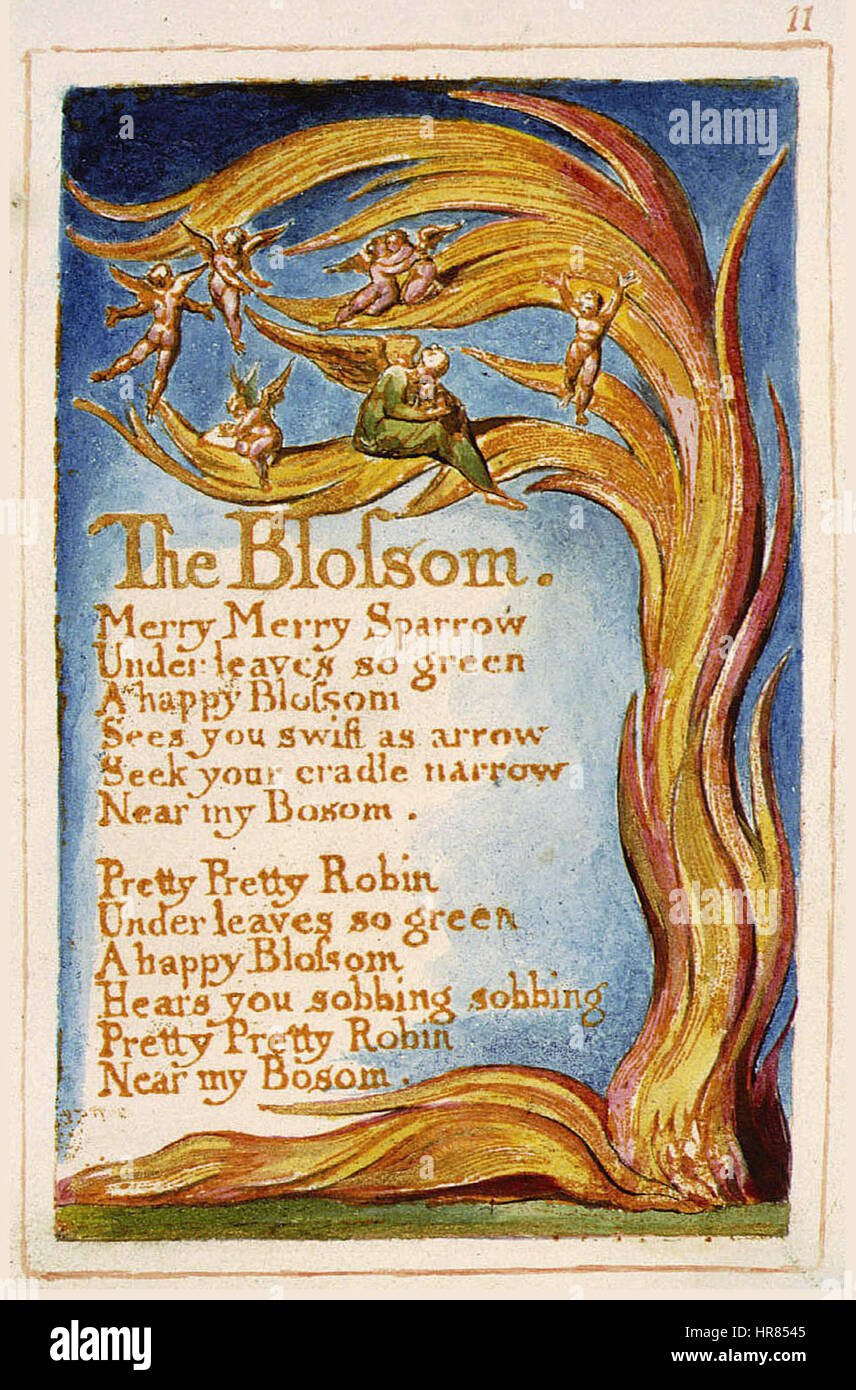 11
The Bloſsom.
Merry Merry Sparrow
Under leaves so green
A happy Bloſsom
Sees you swift as arrow
Seek your cradle narrow
Near my Bosom.
Pretty Pretty Robin
Under leaves so green
A happy Bloſsom
Hears you sobbing sobbing
Pretty Pretty Robin
Near my Bosom.
a
alamy
a
alamy
a
a
alamy stock photo
HR8545
www.alamy.com